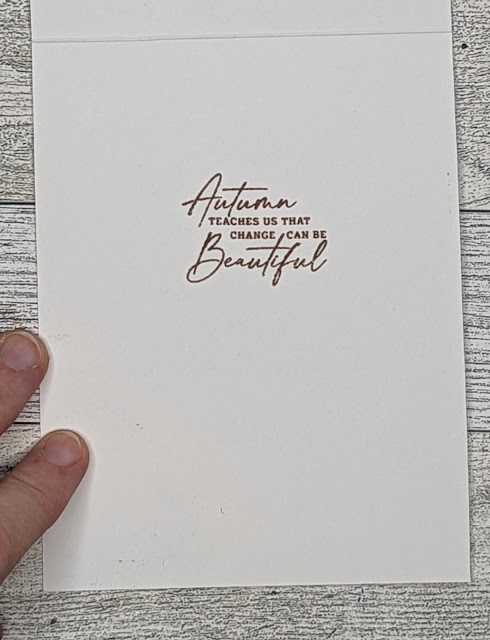 Autumn
TEACHES US THAT
CHANGE CAN BE
Beautiful